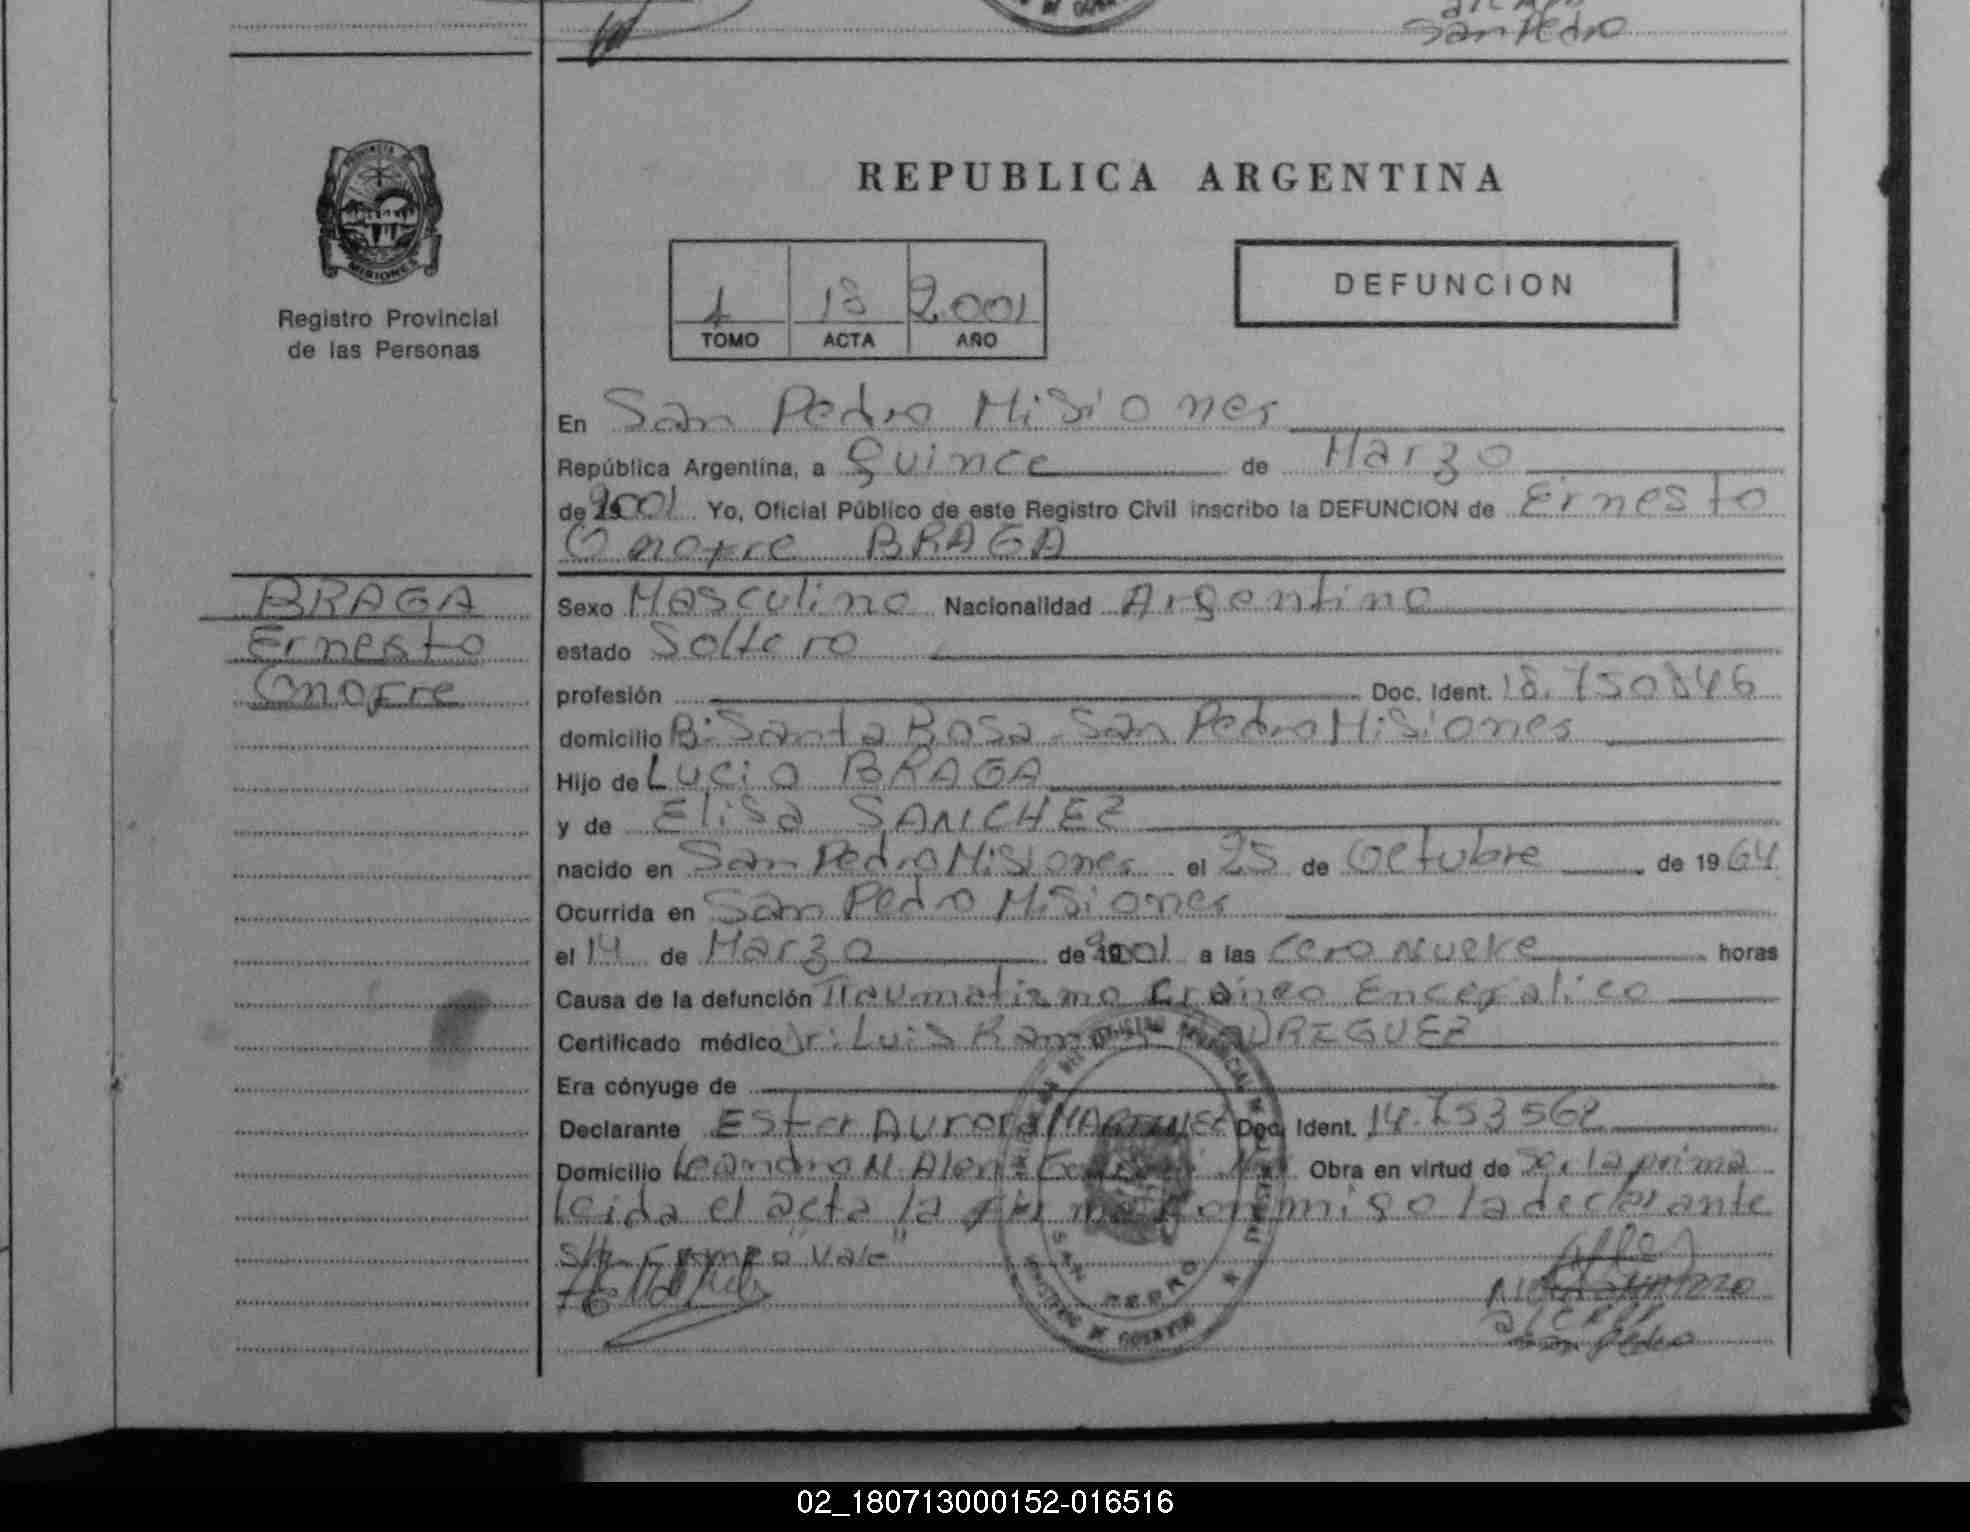 San Pedro
PROVINCIA DE
MISIONES
Registro Provincial
de las Personas
REPUBLICA ARGENTINA
1 13 2.001
TOMO ACTA AÑO
DEFUNCION
En San Pedro Misiones
República Argentina, a Quince de Marzo
de 2001 Yo, Oficial Público de este Registro Civil inscribo la DEFUNCION de Ernesto
Onofre BRAGA
BRAGA
Ernesto
Onofre
Sexo Masculino Nacionalidad Argentino
estado Soltero
profesión Doc. Ident. 18.750846
domicilio B: Santa Rosa - San Pedro Misiones
Hijo de Lucio BRAGA
y de Elisa SANCHEZ
nacido en San Pedro Misiones el 25 de Octubre de 1964
Ocurrida en San Pedro Misiones
el 14 de Marzo de 2001 a las cero nueve horas
Causa de la defunción Traumatismo Craneo Encefalico
Certificado médico Dr: Luis Ramon
Era cónyuge de
Declarante Ester Aurora MARTINEZ Doc. Ident. 14.753562
Domicilio Leandro N. Alem Obra en virtud de Ser la prima
Leida el acta la firma conmigo la declarante
S/R Vale
San Pedro
REGISTRO PROVINCIAL DE LAS PERSONAS
SAN PEDRO
MINISTERIO DE GOBIERNO
02_180713000152-016516